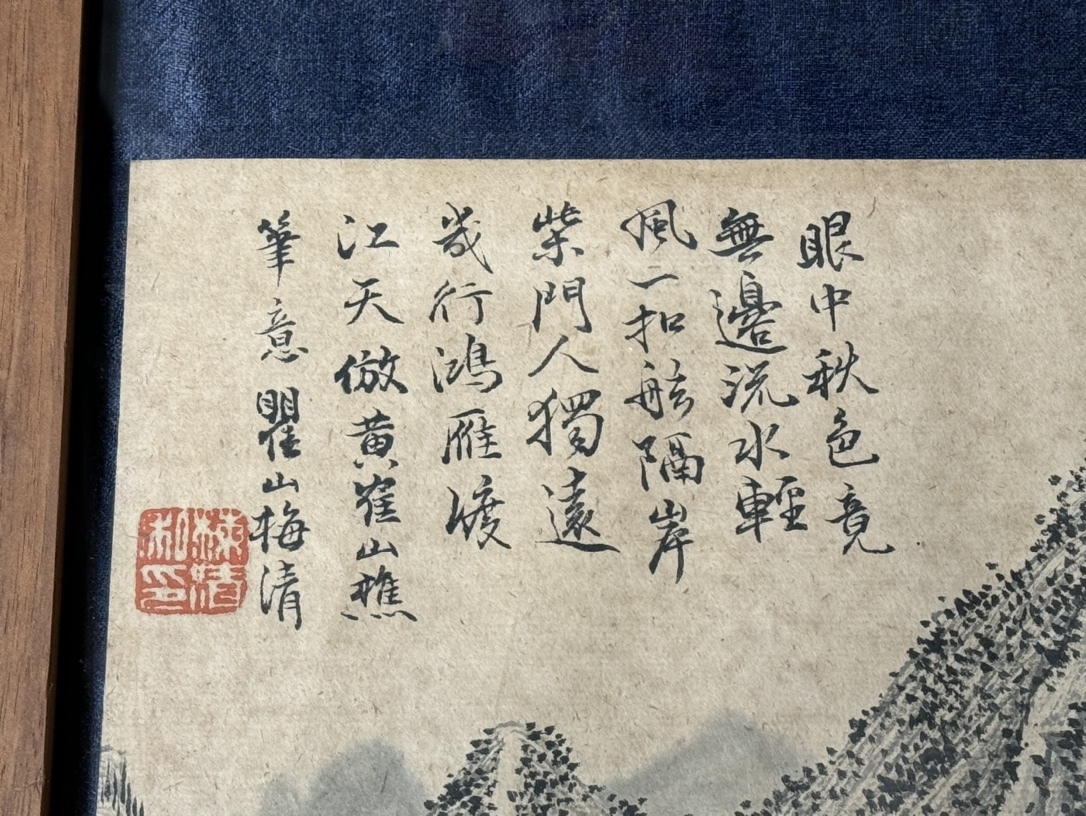 眼中秋色竟
無邊流水輕
風一扣舷隔岸
柴門人獨遠
幾行鴻雁渡
江天倣黃寉山樵
筆意瞿山梅清